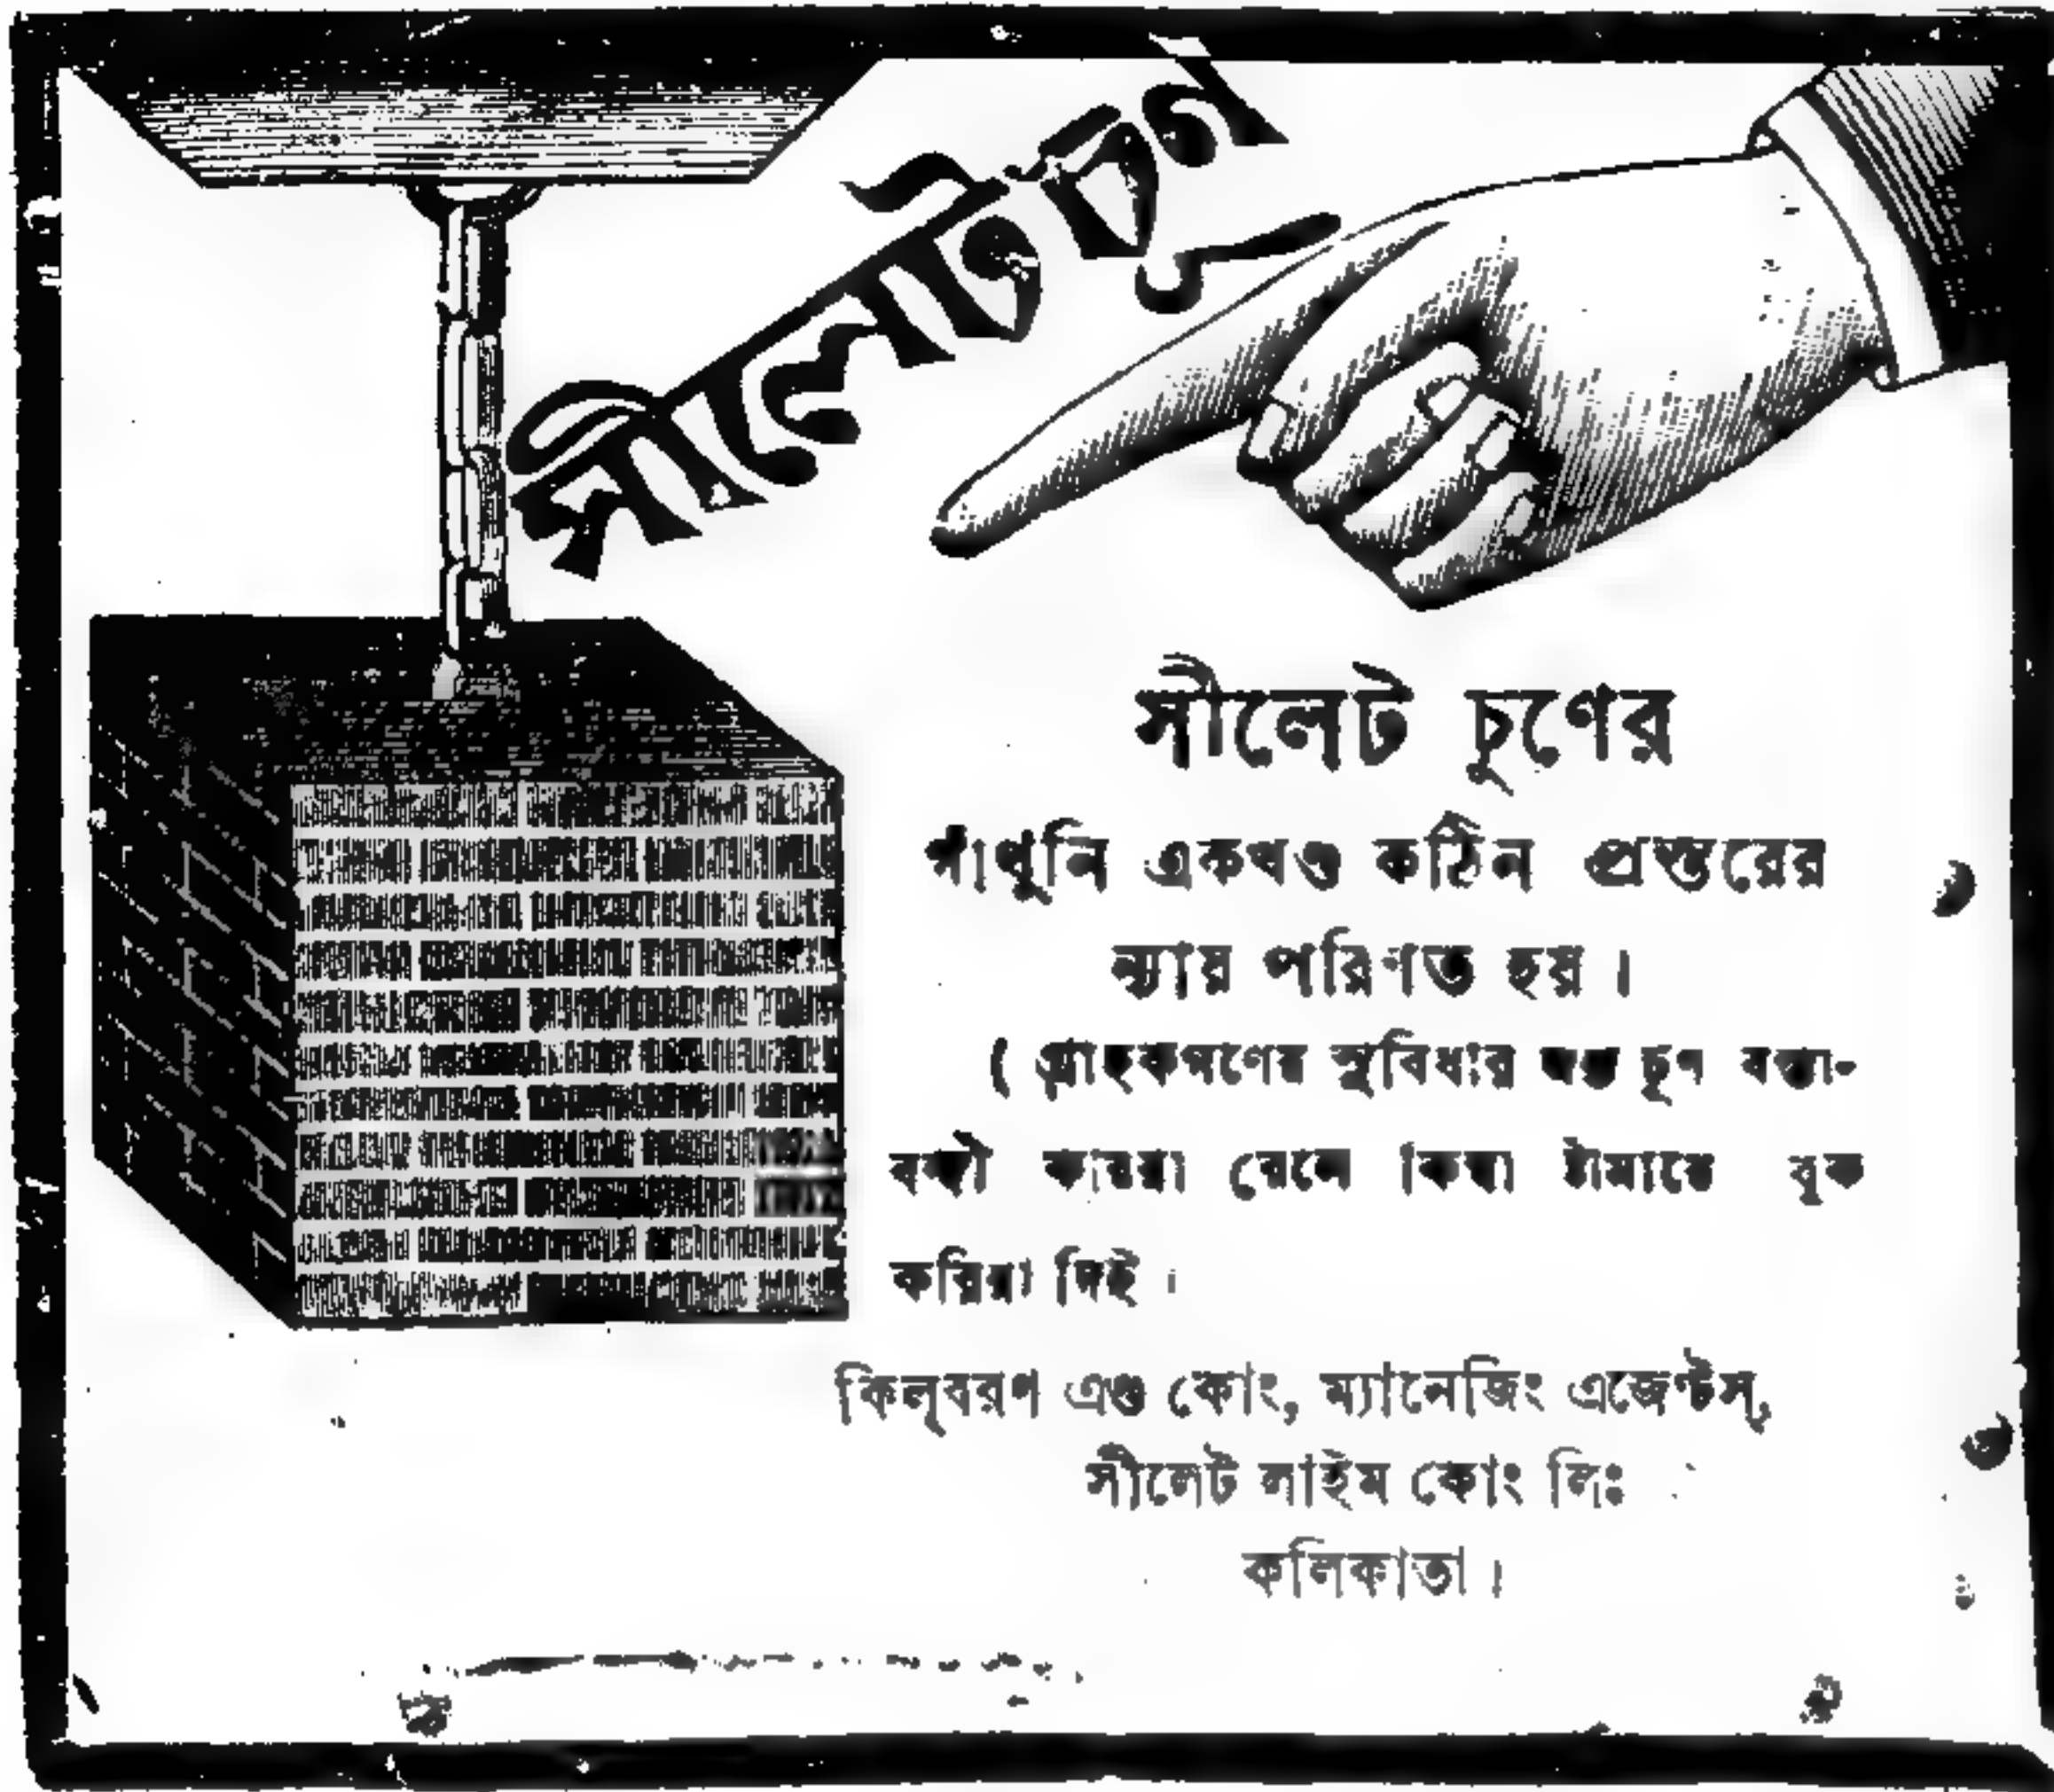 সীলেট চূণ
সীলেট চূণের
গাঁথুনি একখণ্ড কঠিন প্রস্তরের
ন্যায় পরিণত হয়।
( গ্রাহকগণের সুবিধার জন্ত চূণ বস্তা-
বন্দী করিয়া রেলে কিম্বা ষ্টীমারে বুক
করিয়া দিই।
কিল্‌বরণ এণ্ড কোং, ম্যানেজিং এজেণ্টস্,
সীলেট লাইম কোং লিঃ
কলিকাতা।